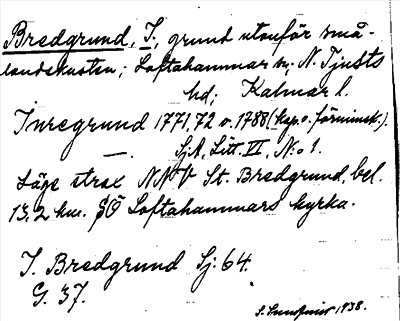 Bredgrund, I., grund utanför små-
landskusten; Loftahammar sn; N. Tjusts
hd; Kalmar l.
Inregrund 1771, 72 o. 1788 (kap. o. förminsk.).
— SjA, Litt. VI, No 1.
Läge strax NNV St. Bredgrund, bel.
13,2 km. SÖ Loftahammars kyrka.
I. Bredgrund Sj. 64.
G. 37.
S. Sundqvist 1938.